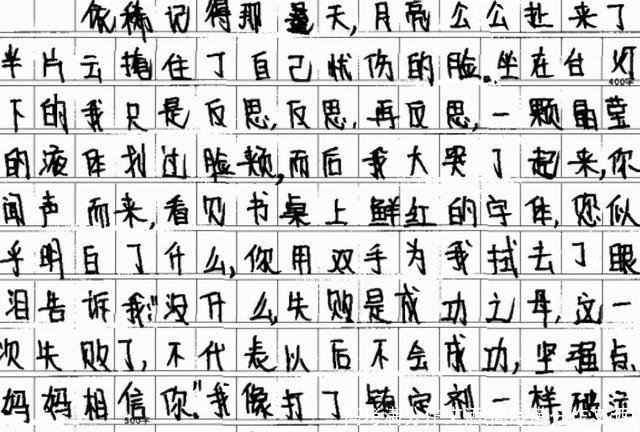 依稀记得那是天,月亮公公赴来了
半片云掩住了自己忧伤的脸。坐在台灯
400字
下的我只是反思,反思,再反思,一颗晶莹
的液体划过脸颊,而后我大哭了起来,你
闻声而来,看见书桌上鲜红的字体,您似
乎明白了什么,你用双手为我拭去了眼
泪告诉我:"没什么,失败是成功之母,这一
次失败了,不代表以后不会成功,坚强点,
妈妈相信你"我像打了镇定剂一样破涕
500字